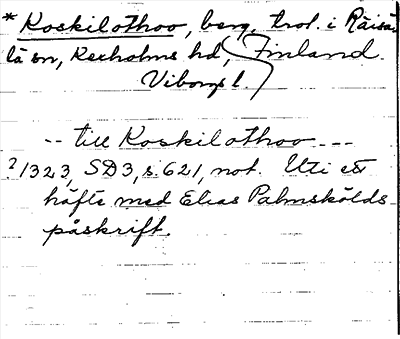 * Koskilothoo, berg, trol. i Räisä-
lä sn, Kexholms hd, Finland.
Viborgs l.
-- till Koskilothoo ---
? 1323, SD 3, s. 621, not. Uti ett
häfte med Elias Palmskölds
påskrift.